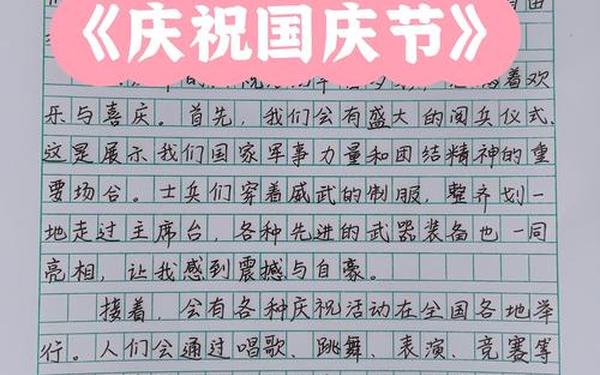 《庆祝国庆节》
着欢
乐与喜庆。首先，我们会有盛大的阅兵仪式，
这是展示我们国家军事力量和团结精神的重
要场合。士兵们穿着威武的制服，整齐划一
地走过主席台，各种先进的武器装备也一同
亮相，让我感到震撼与自豪。
接着，会有各种庆祝活动在全国各地举
行。人们会通过唱歌、跳舞、表演、竞赛等